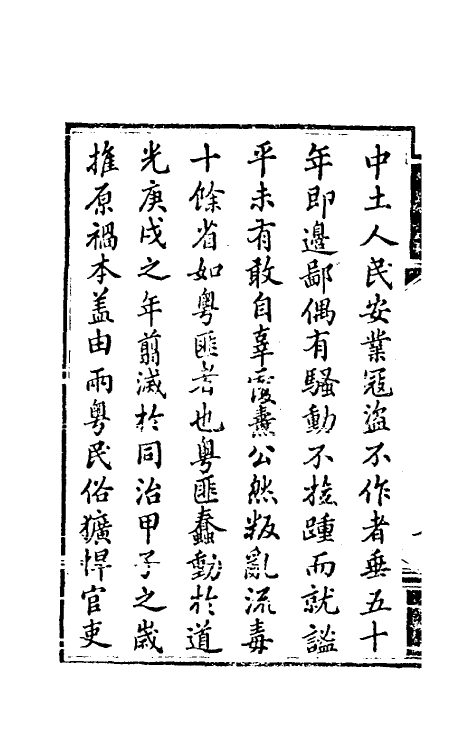 中土人民安業寇盜不作者垂五十
年即邊鄙偶有騷動不旋踵而就謐
平未有敢自辜覆燾公然叛亂流毒
十餘省如粵匪者也粵匪蠢動於道
光庚戌之年翦滅於同治甲子之歲
推原禍本盖由兩粵民俗獷悍官吏